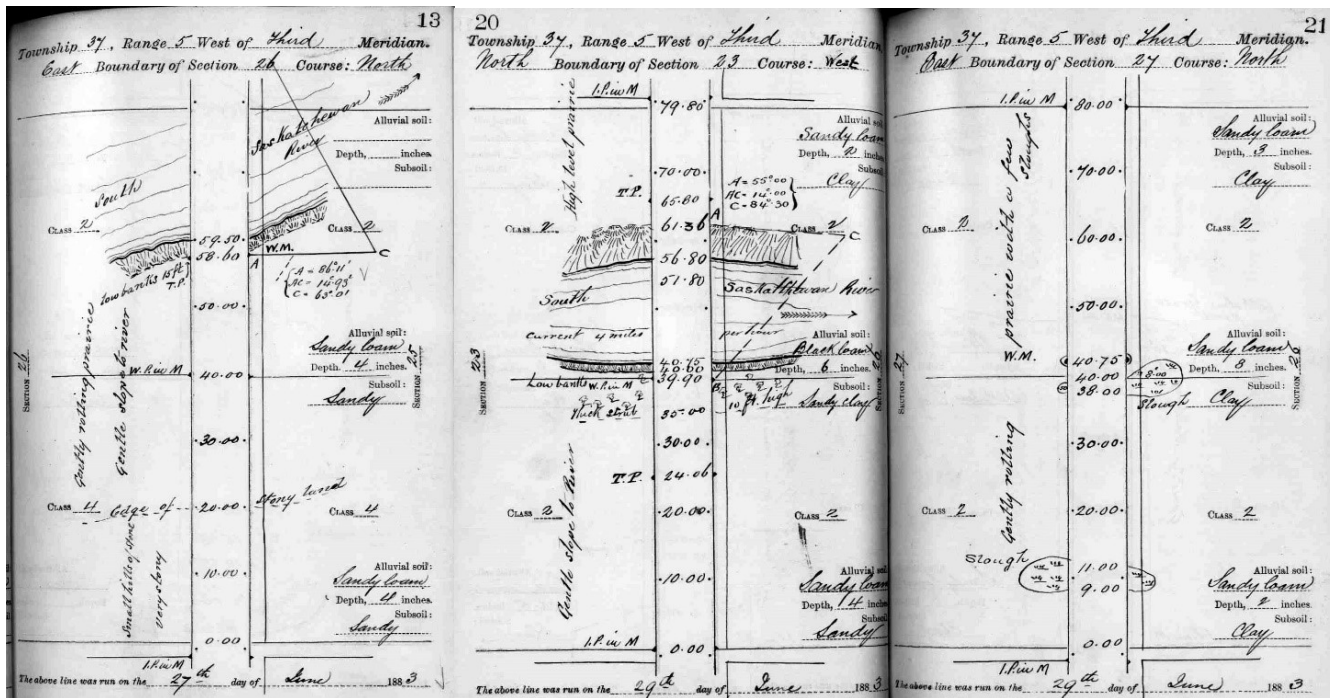 13
Township 37, Range 5 West of Third Meridian.
East Boundary of Section 26 Course: North
Saskatchewan
River
Alluvial soil:
Depth, inches.
Subsoil:
South
CLASS 2
CLASS 2
59.50
W.M.
58.60
A
C
low banks 15 ft
T.P.
A = 86°11'
AC = 14.93
C = 63°01'
50.00
Gently rolling prairie
Gentle slope to river
Alluvial soil:
Sandy loam
Depth, 4 inches.
SECTION 26
SECTION 25
W.P. in M
40.00
Subsoil:
Sandy
30.00
CLASS 4
Edge of
20.00
Stony land
CLASS 4
Small hills of stone
very stony
10.00
Alluvial soil:
Sandy loam
Depth, 4 inches.
Subsoil:
Sandy
0.00
I.P. in M
The above line was run on the 27th day of June 1883
20
Township 37, Range 5 West of Third Meridian
North Boundary of Section 23 Course: West
I.P. in M
79.80
High level prairie
Alluvial soil:
Sandy loam
Depth, 2 inches.
Subsoil:
Clay
70.00
T.P.
65.80
A = 55°00
AC = 14.00
C = 84°30
A
CLASS 2
61.36
CLASS 2
C
56.80
51.80
South
Saskatchewan River
current 4 miles
per hour
Alluvial soil:
Black loam
Depth, 6 inches.
40.75
40.00
39.90
SECTION 23
SECTION 26
Low bank
W.P. in M
B
10 ft. high
Subsoil:
Sandy clay
Thick scrub
35.00
30.00
T.P.
24.06
CLASS 2
20.00
CLASS 2
Gentle slope to River
10.00
Alluvial soil:
Sandy loam
Depth, 14 inches.
Subsoil:
Sandy
I.P. in M
0.00
The above line was run on the 29th day of June 1883
21
Township 37, Range 5 West of Third Meridian.
East Boundary of Section 27 Course: North
I.P. in M
80.00
Alluvial soil:
Sandy loam
Depth, 3 inches.
Subsoil:
Clay
prairie with a few
sloughs
70.00
CLASS 2
CLASS 2
60.00
50.00
W.M.
40.75
Alluvial soil:
Sandy loam
Depth, 3 inches.
SECTION 27
SECTION 26
40.00
38.00
38.00
Slough
Subsoil:
Clay
Gently rolling
30.00
CLASS 2
20.00
CLASS 2
Slough
11.00
9.00
Alluvial soil:
Sandy loam
Depth, 2 inches.
Subsoil:
Clay
0.00
I.P. in M
The above line was run on the 29th day of June 1883